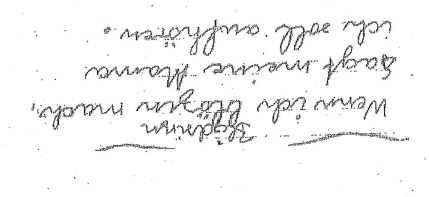 Blödsinn
Wenn ich blözin mach,
sagt meine Mama
ich soll aufhören.